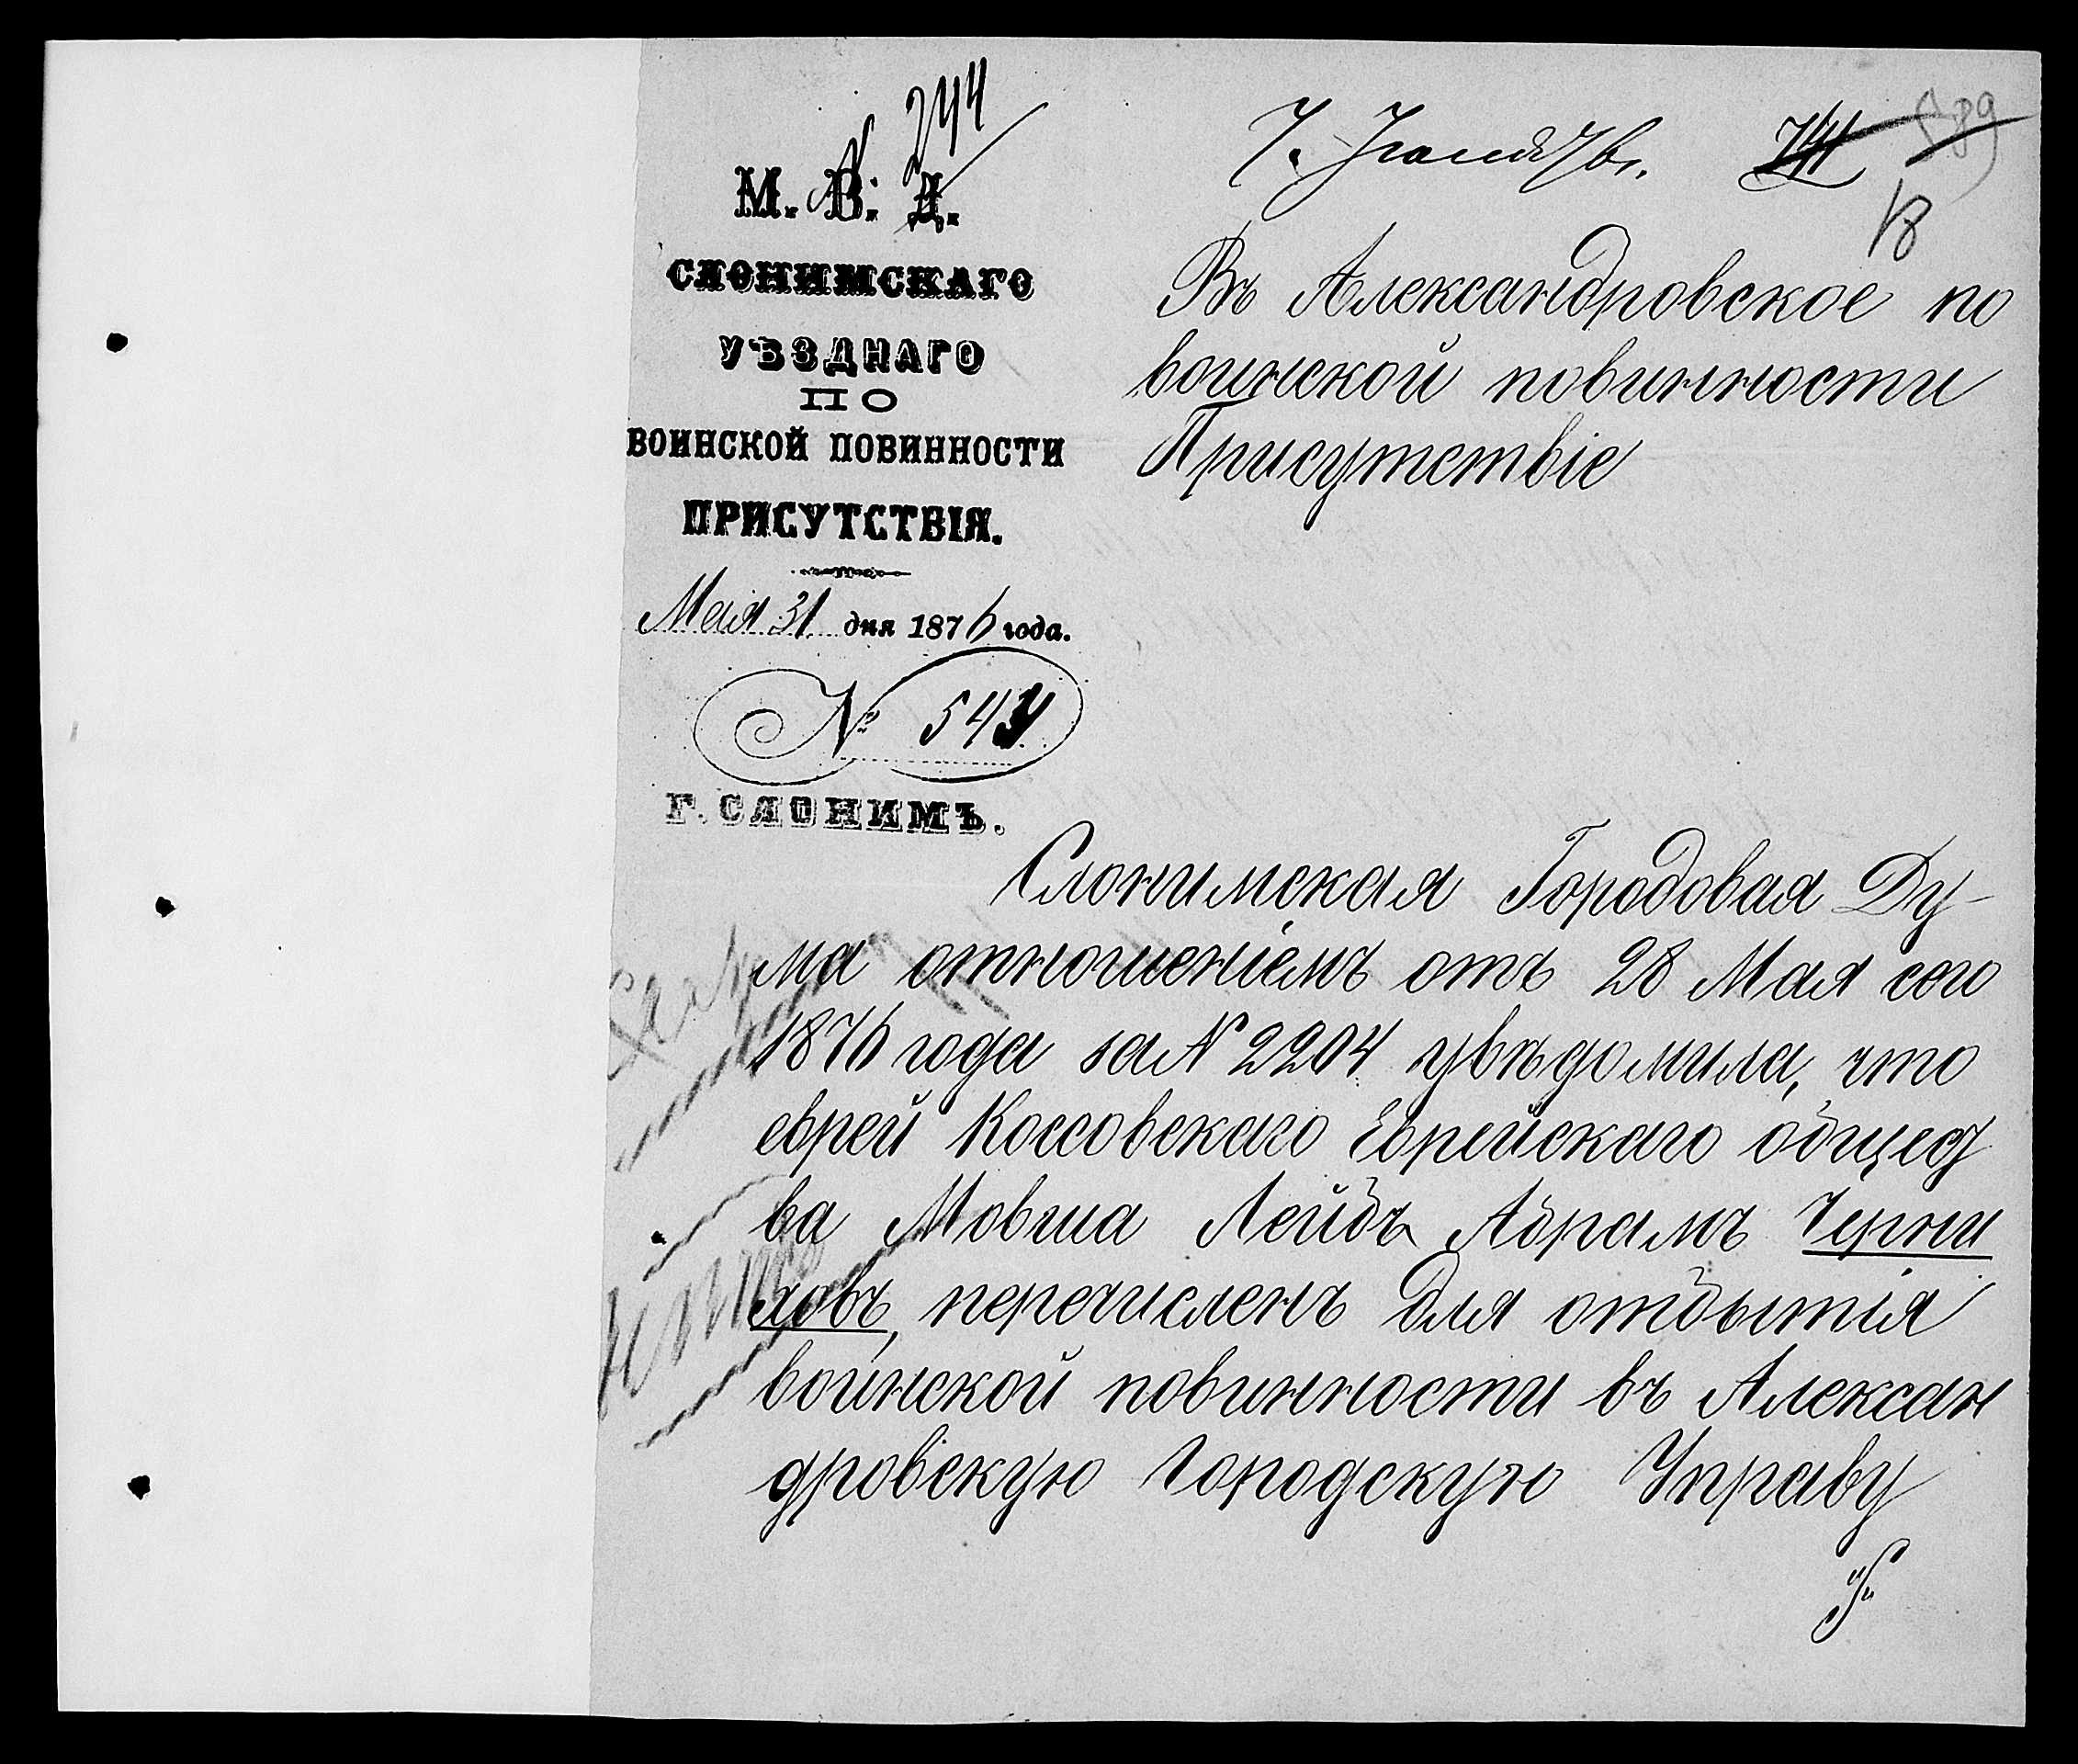 № 244
М. В. Д.
СЛОНИМСКАГО
УѢЗДНАГО
ПО
ВОИНСКОЙ ПОВИННОСТИ
ПРИСУТСТВІЯ.
Мая 31 дня 1876 года.
№ 544
Г. СЛОНИМЪ.
7. Іюня 76 г. 741 589
18
Въ Александровское по
воинской повинности
Присутствіе
Слонимская Городовая Ду-
ма отношеніемъ отъ 28 Мая сего
1876 года за № 2204 увѣдомила, что
еврей Коссовскаго Еврейскаго общест
ва Мовша Лейбъ Абрамъ Черни
ховъ, перечисленъ для отбытія
воинской повинности въ Алексан
дровскую Городскую Управу